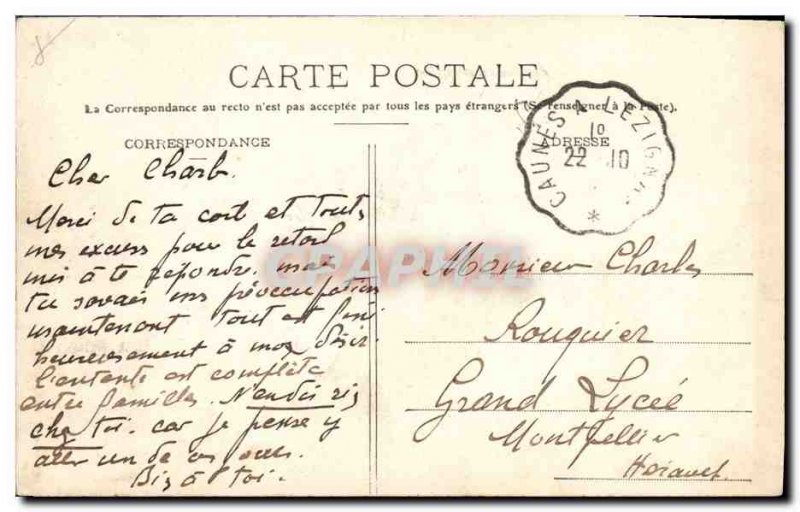 CARTE POSTALE
La Correspondance au recto n'est pas acceptée par tous les pays étrangers (Se renseigner à la Poste).
CORRESPONDANCE
ADRESSE
CAUNES A LEZIGNAN
1º
22 10
*
Cher Charb.
Merci de ta carte et toutes
mes excuses pour le retard
mis à te répondre. mais
tu savais mes préoccupations
maintenant tout est fini
heureusement à mon désir.
L'entente est complète
entre familles. N'en dis rien
chez toi. car je pense y
aller un de ces jours.
Bis à toi.
Monsieur Charles
Rouquier
Grand Lycée
Montpellier
Hérault.
CARAPHIL